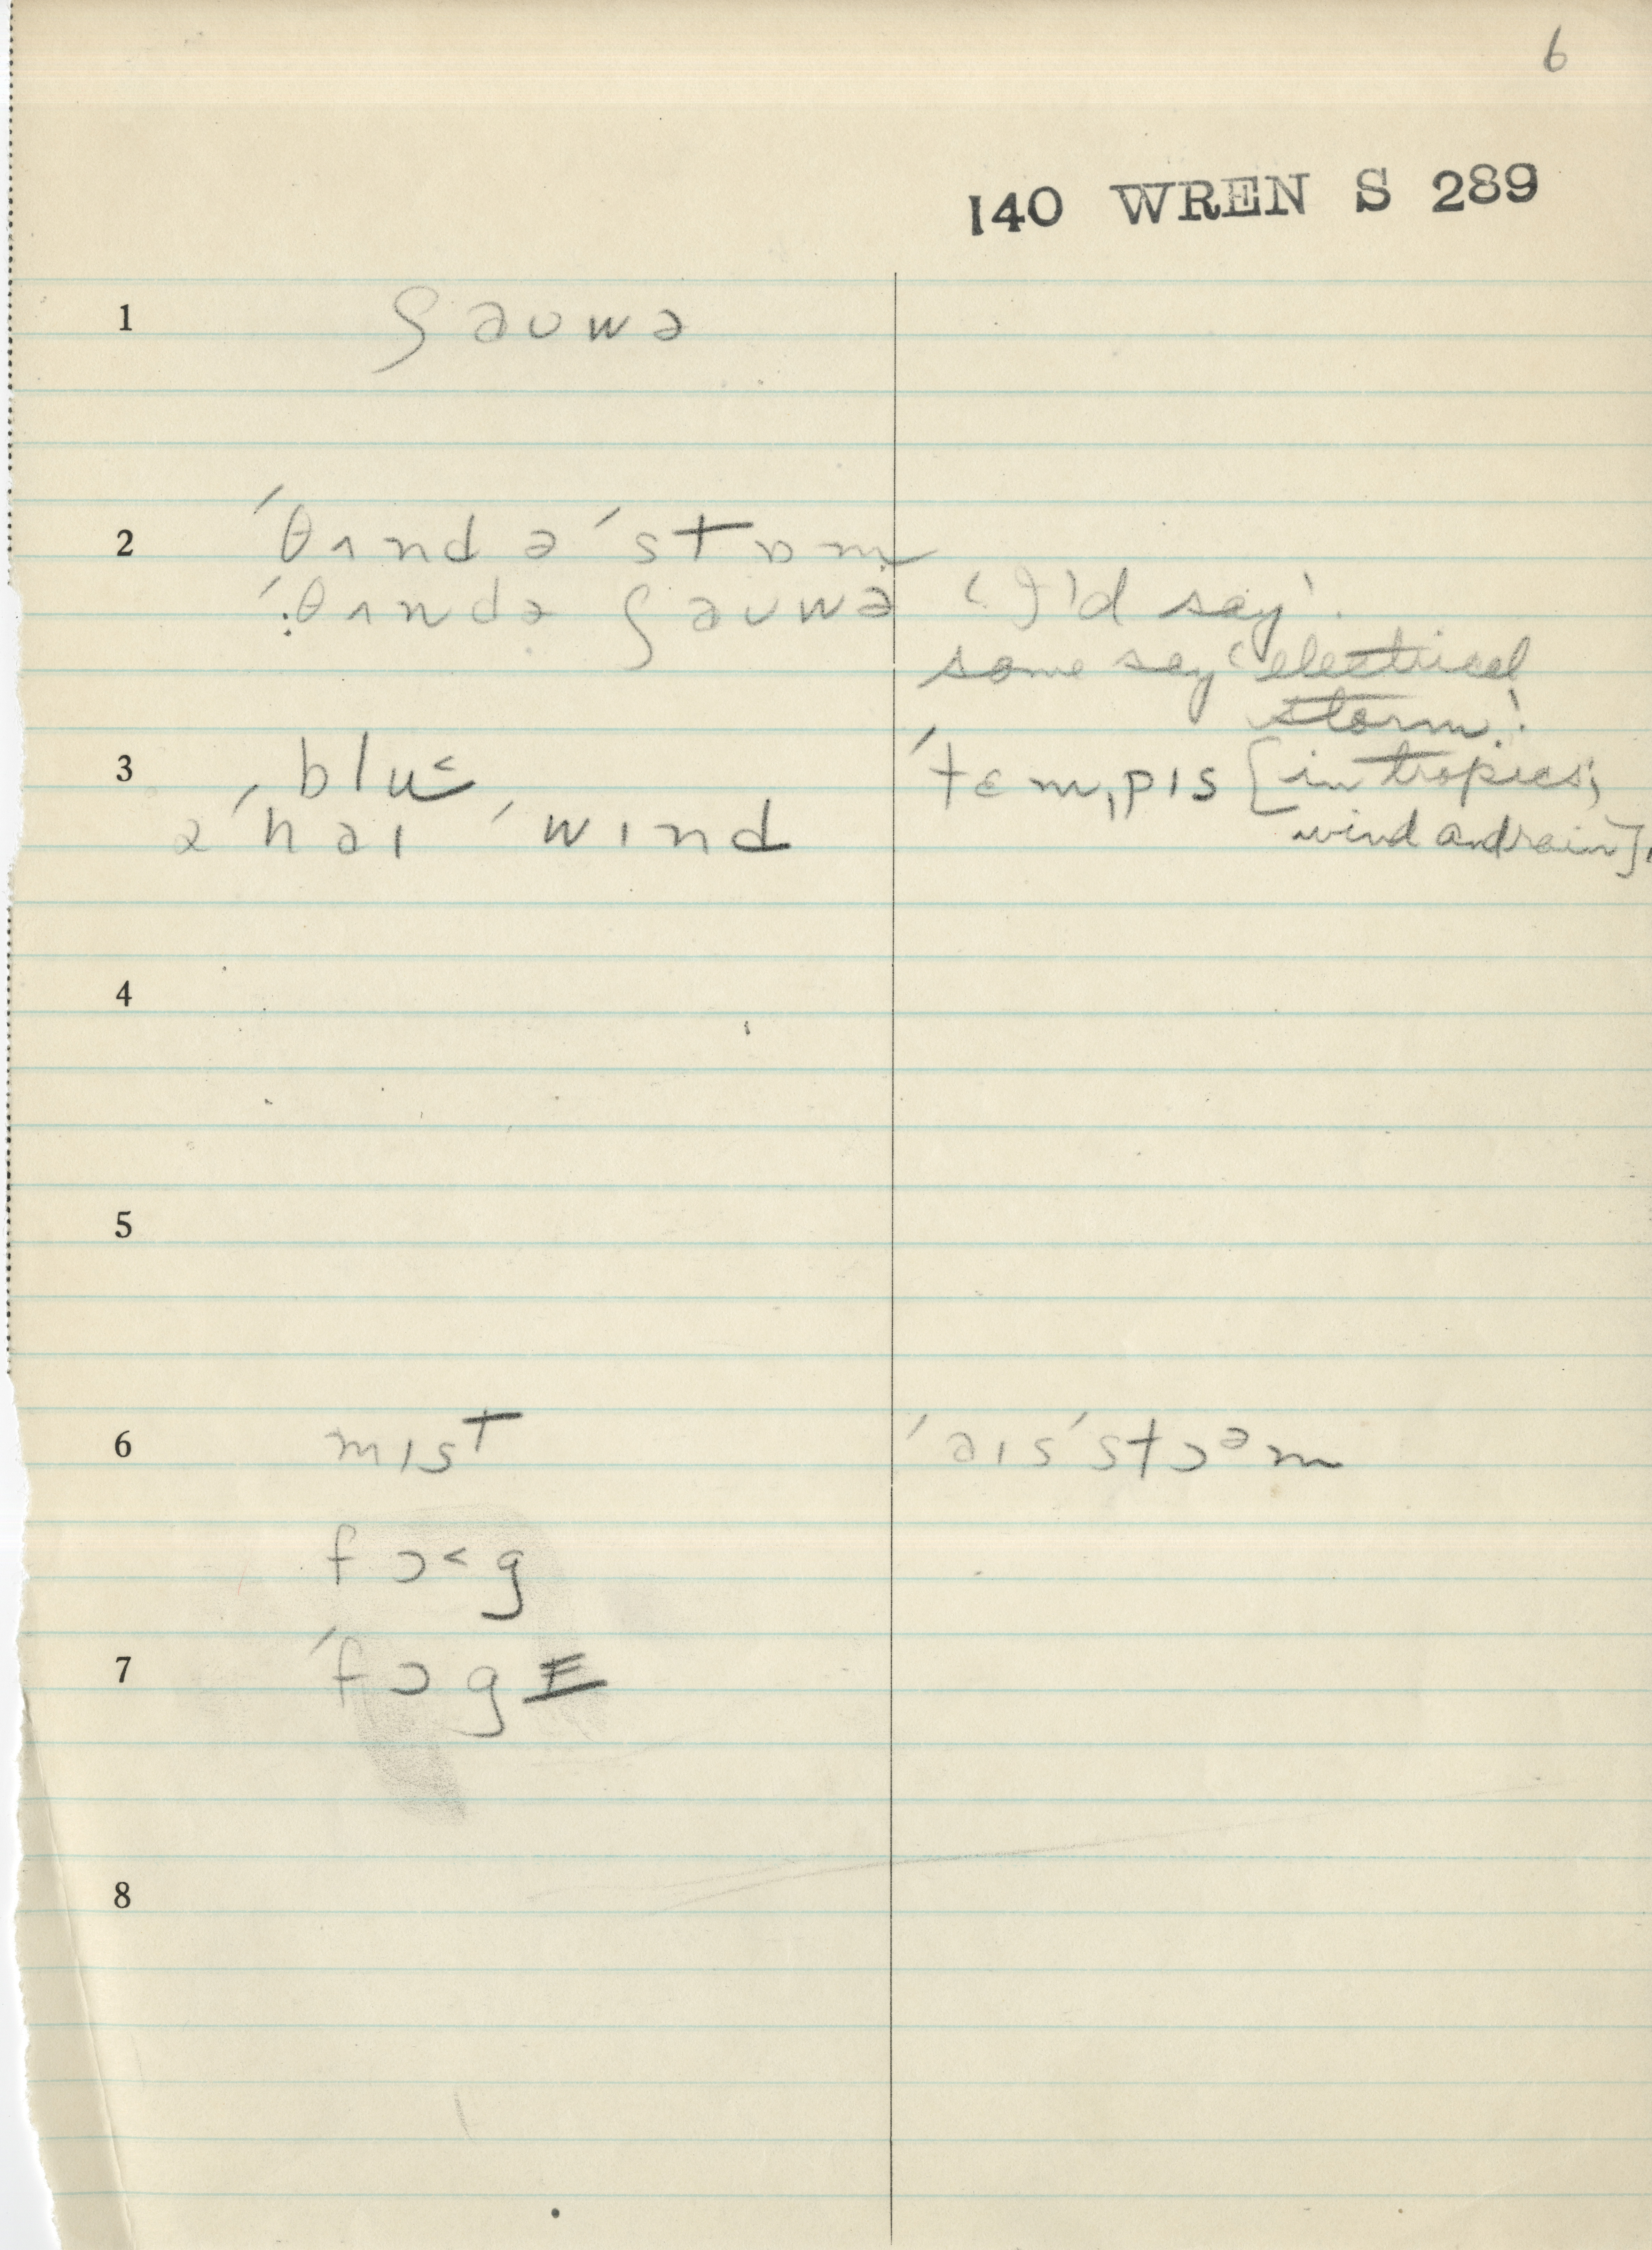 6
140 WREN S 289
1 ʃaʊwə
2 ˈθʌndəˈstɒm
ˈθʌndə ʃaʊwə ‘I'd say’.
some say ‘electrical
storm.’
3 blu˂ ˈtɛmˌpɪs [in tropics;
əˈhaɪ ˈwɪnd wind and rain].
4
5
6 mɪst ˈaɪsˈstɔᵊm
fɔ˂g
7 ˈfɔgɪ
8